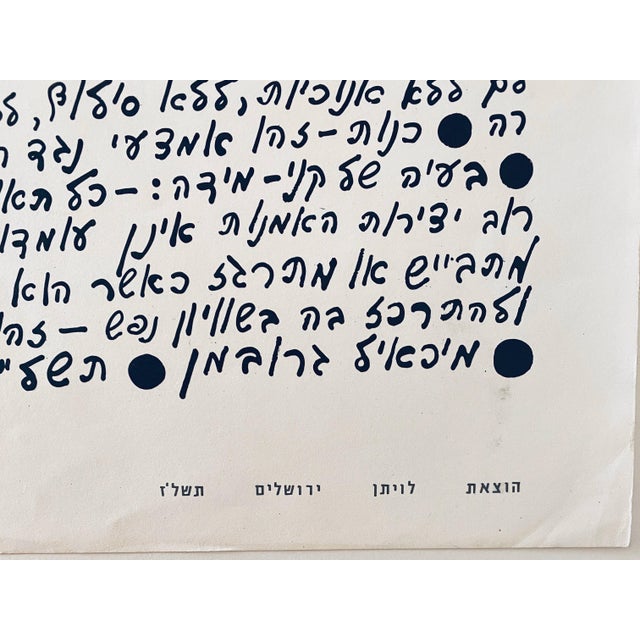 ללא אנוכיות, ללא סילוף,
רה ● כנות – זהו אמצעי נגד
● בעיה של קני-מידה: – כל
רוב יצירות האמנות אינן
מתבייש או מתרגז כאשר הוא
ולהתרכז בה בשוויון נפש –
● מיכאיל גרובמן ●
הוצאת לויתן ירושלים תשל'ז